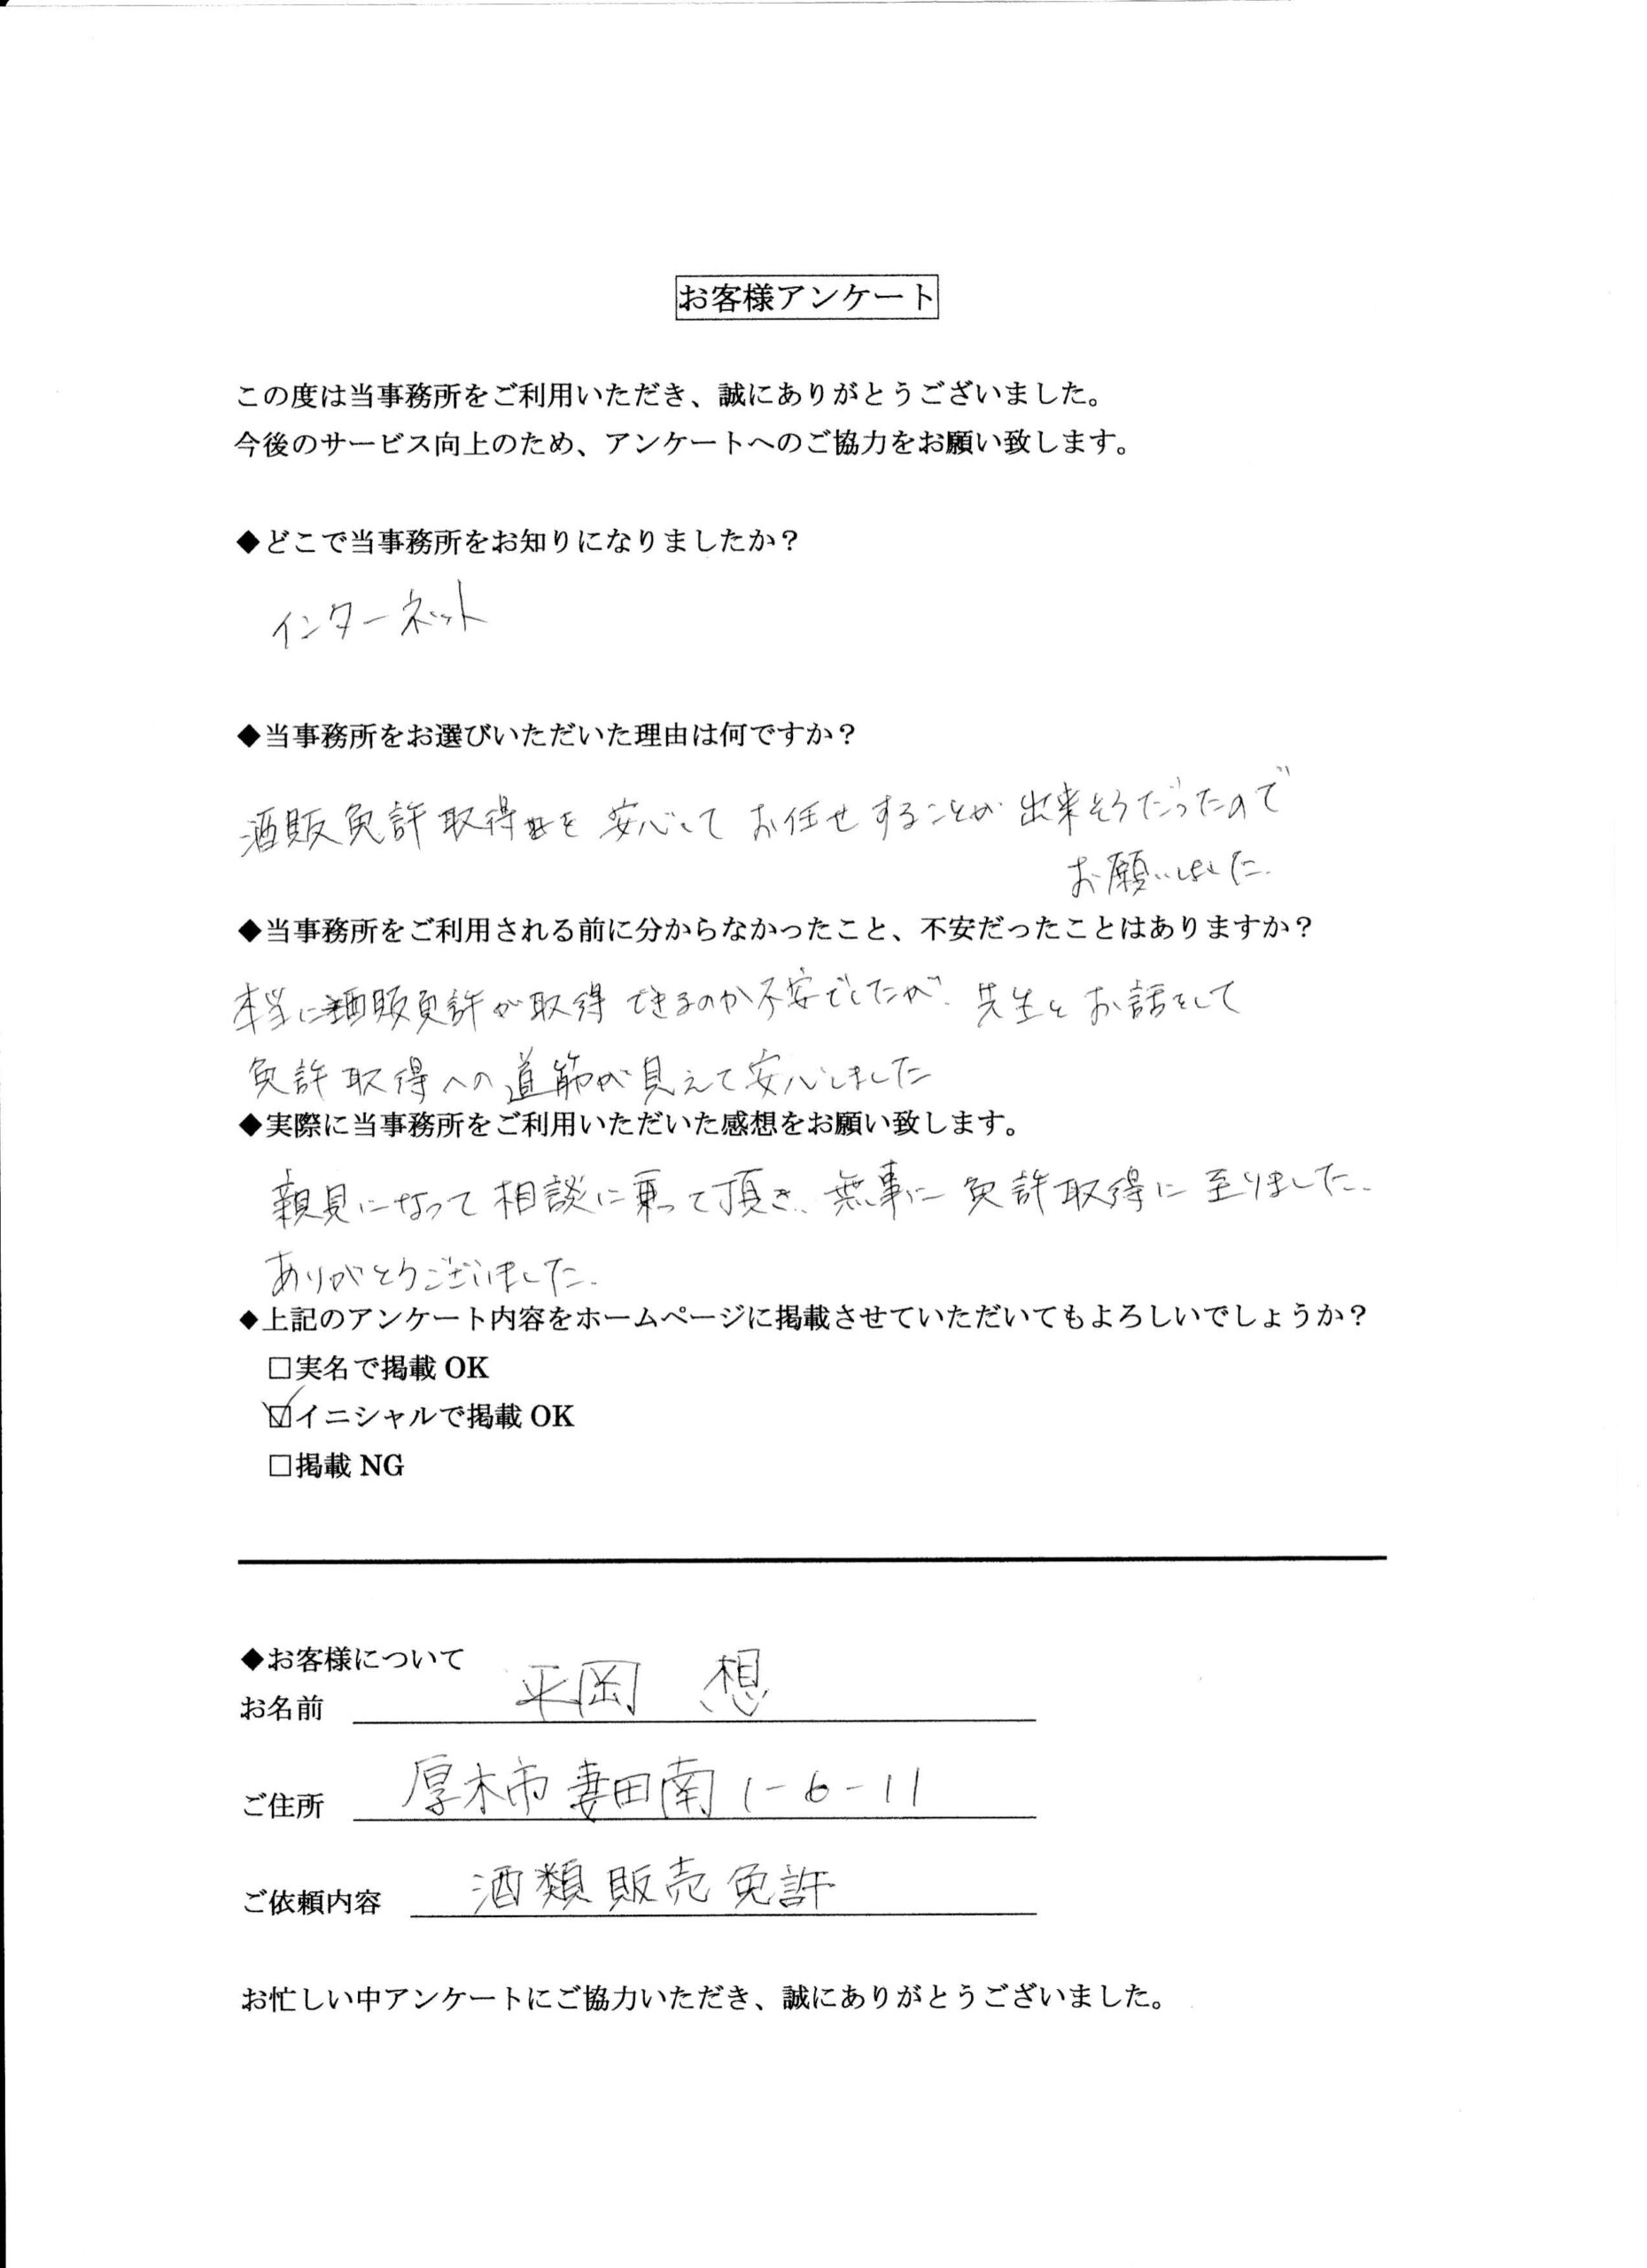 お客様アンケート
この度は当事務所をご利用いただき、誠にありがとうございました。
今後のサービス向上のため、アンケートへのご協力をお願い致します。
◆どこで当事務所をお知りになりましたか？
インターネット
◆当事務所をお選びいただいた理由は何ですか？
酒販免許取得を安心してお任せすることが出来そうだったので
お願いしました.
◆当事務所をご利用される前に分からなかったこと、不安だったことはありますか？
本当に酒販免許が取得できるのか不安でしたが、先生とお話をして
免許取得への道筋が見えて安心しました
◆実際に当事務所をご利用いただいた感想をお願い致します。
親見になって相談に乗って頂き、無事に免許取得に至りました.
ありがとうございました.
◆上記のアンケート内容をホームページに掲載させていただいてもよろしいでしょうか？
□実名で掲載 OK
☑イニシャルで掲載 OK
□掲載 NG
◆お客様について
お名前 平岡 想
ご住所 厚木市妻田南1-6-11
ご依頼内容 酒類販売免許
お忙しい中アンケートにご協力いただき、誠にありがとうございました。